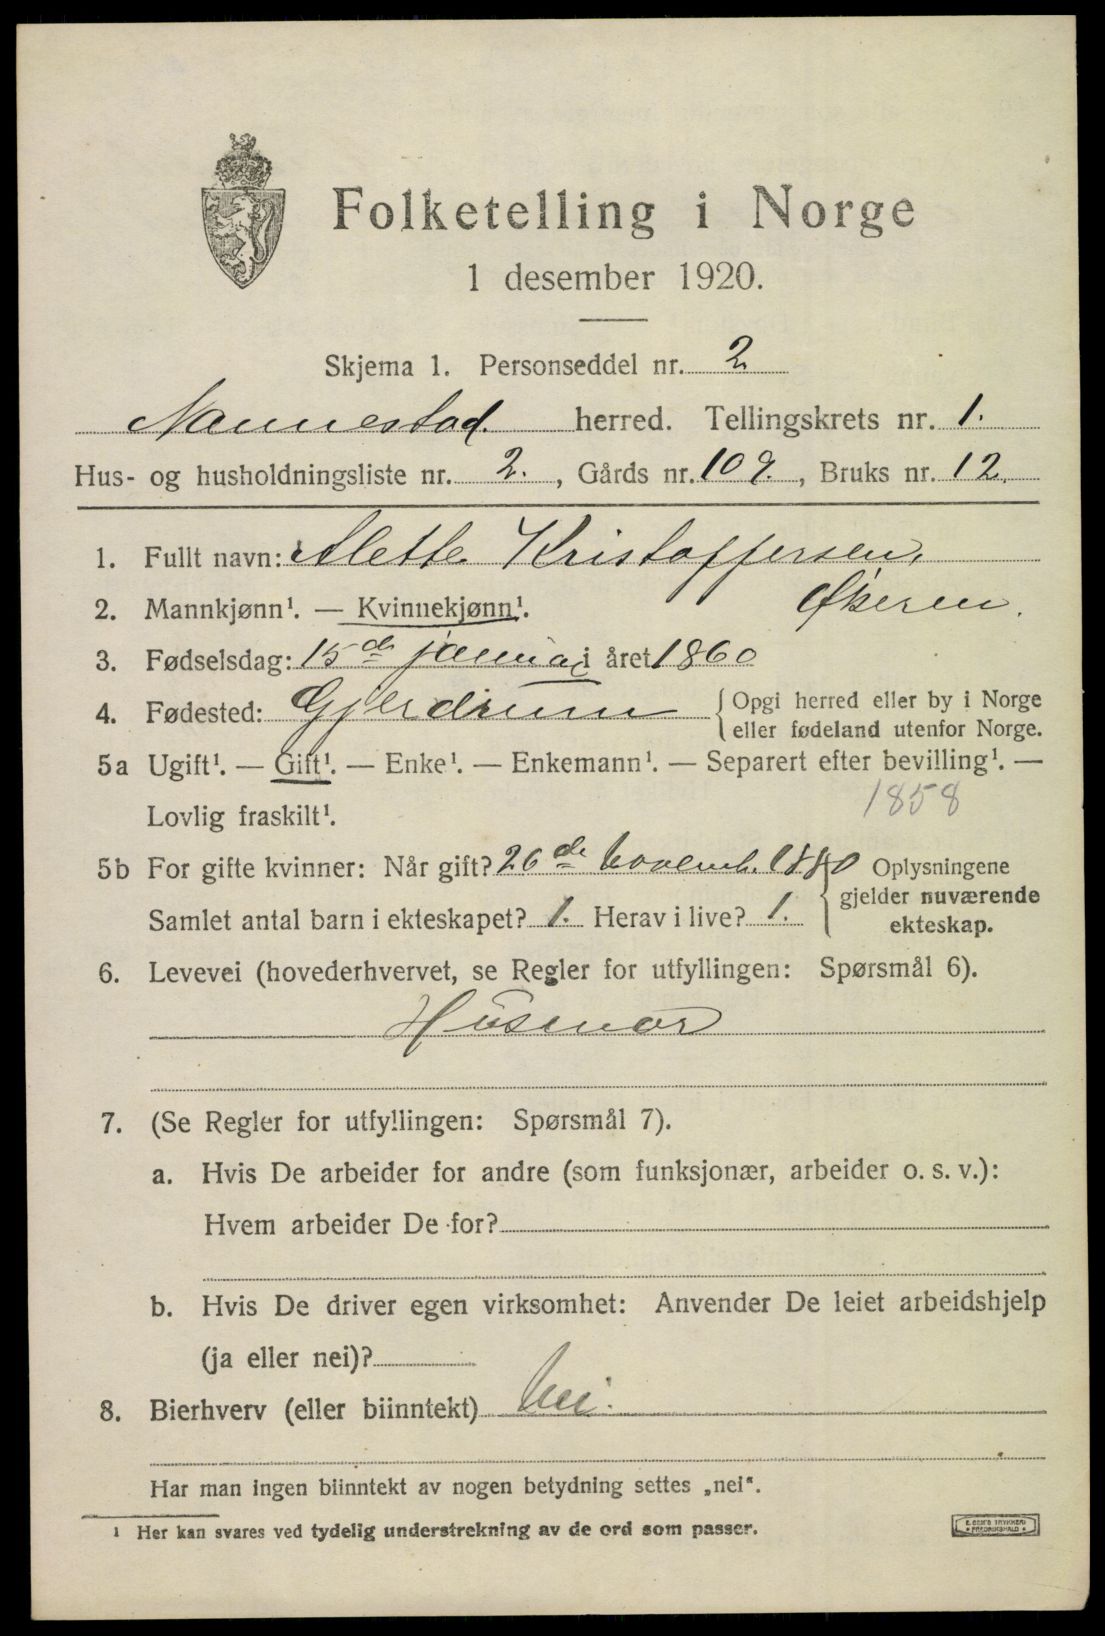 Folketelling i Norge
1 desember 1920.
Skjema 1. Personseddel nr. 2
Nannestad. herred. Tellingskrets nr. 1.
Hus- og husholdningsliste nr. 2. , Gårds nr. 109. , Bruks nr. 12.
1. Fullt navn: Alette Kristoffersen,
2. Mannkjønn¹. — Kvinnekjønn¹. Økeren.
3. Fødselsdag: 15de januar i året 1860
4. Fødested: Gjerdrum { Opgi herred eller by i Norge
eller fødeland utenfor Norge.
5a Ugift¹. — Gift¹. — Enke¹. — Enkemann¹. — Separert efter bevilling¹. —
Lovlig fraskilt¹. 1858
5b For gifte kvinner: Når gift? 26de Novemb. 1880 Oplysningene
Samlet antal barn i ekteskapet? 1. Herav i live? 1. { gjelder nuværende
ekteskap.
6. Levevei (hovederhvervet, se Regler for utfyllingen: Spørsmål 6).
Husmor
7. (Se Regler for utfyllingen: Spørsmål 7).
a. Hvis De arbeider for andre (som funksjonær, arbeider o. s. v.):
Hvem arbeider De for?
b. Hvis De driver egen virksomhet: Anvender De leiet arbeidshjelp
(ja eller nei)?
8. Bierhverv (eller biinntekt) Nei.
Har man ingen biinntekt av nogen betydning settes „nei".
¹ Her kan svares ved tydelig understrekning av de ord som passer.
TRYKKERI
FREDRIKSHALD